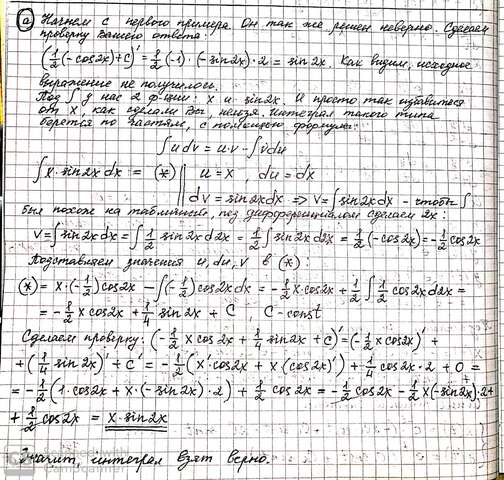 а) Начнем с первого примера. Он так же решен неверно. Сделаем
проверку Вашего ответа:
(1/2(-cos2x)+C)' = 1/2(-1)·(-sin2x)·2 = sin2x. Как видим, исходное
выражение не получилось.
Под ∫ у нас 2 ф-ции: x и sin2x. И просто так избавиться
от x, как сделали Вы, нельзя. Интеграл такого типа
берется по частям, с помощью формулы:
∫udv = u·v - ∫vdu
∫x·sin2xdx = (*) || u = x, du = dx
|| dv = sin2xdx => v = ∫sin2xdx - чтобы ∫
был похож на табличный, под дифференциалом сделаем 2x:
v = ∫sin2xdx = ∫1/2 sin2xd2x = 1/2∫sin2xd2x = 1/2(-cos2x) = -1/2cos2x
Подставляем значения u, du, v в (*):
(*) = x·(-1/2)cos2x - ∫(-1/2)cos2xdx = -1/2x·cos2x + 1/2∫1/2cos2xd2x =
= -1/2xcos2x + 1/4sin2x + C, C-const
Сделаем проверку: (-1/2xcos2x + 1/4sin2x + C)' = (-1/2xcos2x)' +
+ (1/4sin2x)' + C' = -1/2(x'cos2x + x(cos2x)') + 1/4cos2x·2 + 0 =
= -1/2(1·cos2x + x·(-sin2x)·2) + 1/2cos2x = -1/2cos2x - 1/2x(-sin2x)·2+
+ 1/2cos2x = x·sin2x
Значит, интеграл взят верно.
CamScanner